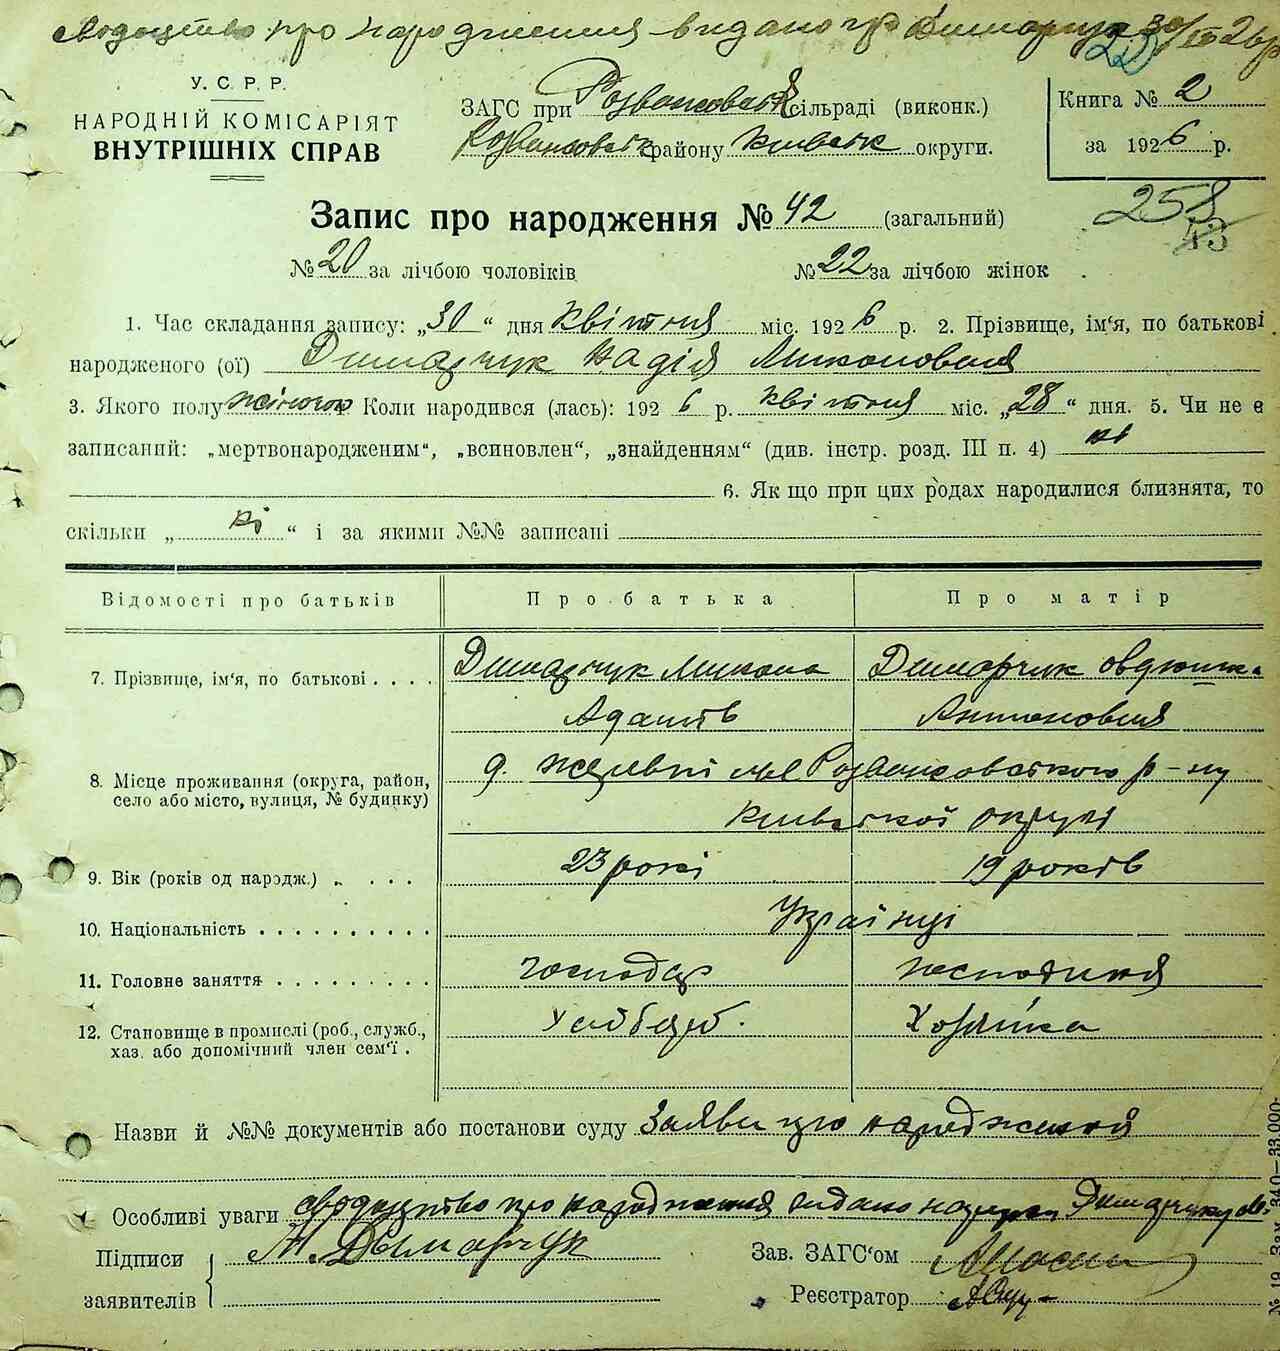 про народження видано гр. Димарчук 30/IV 26 р
У. С. Р. Р.
НАРОДНІЙ КОМІСАРІЯТ
ВНУТРІШНІХ СПРАВ
ЗАГС при Розважовській сільраді (виконк.)
Розважовськ району Київськ округи.
Книга № 2
за 1926 р.
258
43
Запис про народження № 42 (загальний)
№ 20 за лічбою чоловіків № 22 за лічбою жінок
1. Час складання запису: „30“ дня квітня міс. 1926 р. 2. Прізвище, ім'я, по батькові
народженого (ої) Димарчук Надія Миколовна
3. Якого полу жіночого Коли народився (лась): 1926 р. квітня міс. „28“ дня. 5. Чи не є
записаний: „мертвонародженим“, „всиновлен“, „знайденням“ (див. інстр. розд. III п. 4) ні
6. Як що при цих родах народилися близнята, то
скільки „ ні “ і за якими №№ записані
Відомості про батьків Про батька Про матір
7. Прізвище, ім'я, по батькові . . . . Димарчук Микола Димарчук
Адамів Антоновна
8. Місце проживання (округа, район, село або місто, вулиця, № будинку) Розважовського р-ну
Київської округи
9. Вік (років од народж.) . . . . 23 років 19 років
10. Національність . . . . . . . . . . Українці
11. Головне заняття . . . . . . . . . Господар господиня
12. Становище в промислі (роб., служб., хаз. або допомічний член сем'ї . Хлібороб. Хозяйка
Назви й №№ документів або постанови суду Заява про народження
Особливі уваги про народження видано на руки Димарчуку М.
Підписи заявителів М. Дымарчук
Зав. ЗАГС'ом
Реєстратор